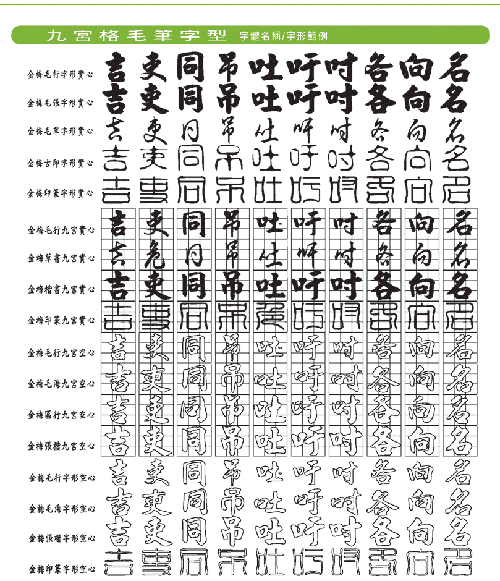 九宮格毛筆字型 字體名稱/字形範例
金梅毛行字形實心 吉吏同吊吐吁吋各向名
金梅毛張字形實心 吉吏同吊吐吁吋各向名
金梅毛草字形實心 吉吏同吊吐吁吋各向名
金梅古印字形實心 吉吏同吊吐吁吋各向名
金梅印篆字形實心 吉吏同吊吐吁吋各向名
金梅毛行九宮實心 吉吏同吊吐吁吋各向名
金梅草書九宮實心 吉危同吊吐吁吋各向名
金梅楷書九宮實心 吉吏同吊吐吁吋各向名
金梅印篆九宮實心 吉吏同吊色吁吋各向名
金梅毛行九宮空心 吉吏同吊吐吁吋各向名
金梅毛海九宮空心 吉吏同吊吐吁吋各向名
金梅國行九宮空心 吉吏同吊吐吁吋各向名
金梅張楷九宮空心 吉吏同吊吐吁吋各向名
金梅毛行字形空心 吉吏同吊吐吁吋各向名
金梅毛海字形空心 吉吏同吊吐吁吋各向名
金梅張楷字形空心 吉吏同吊吐吁吋各向名
金梅印篆字形空心 吉吏同吊吐吁吋各向名